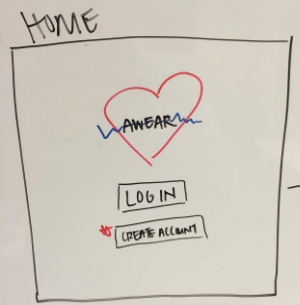 HOME
AWEAR
LOG IN
CREATE ACCOUNT